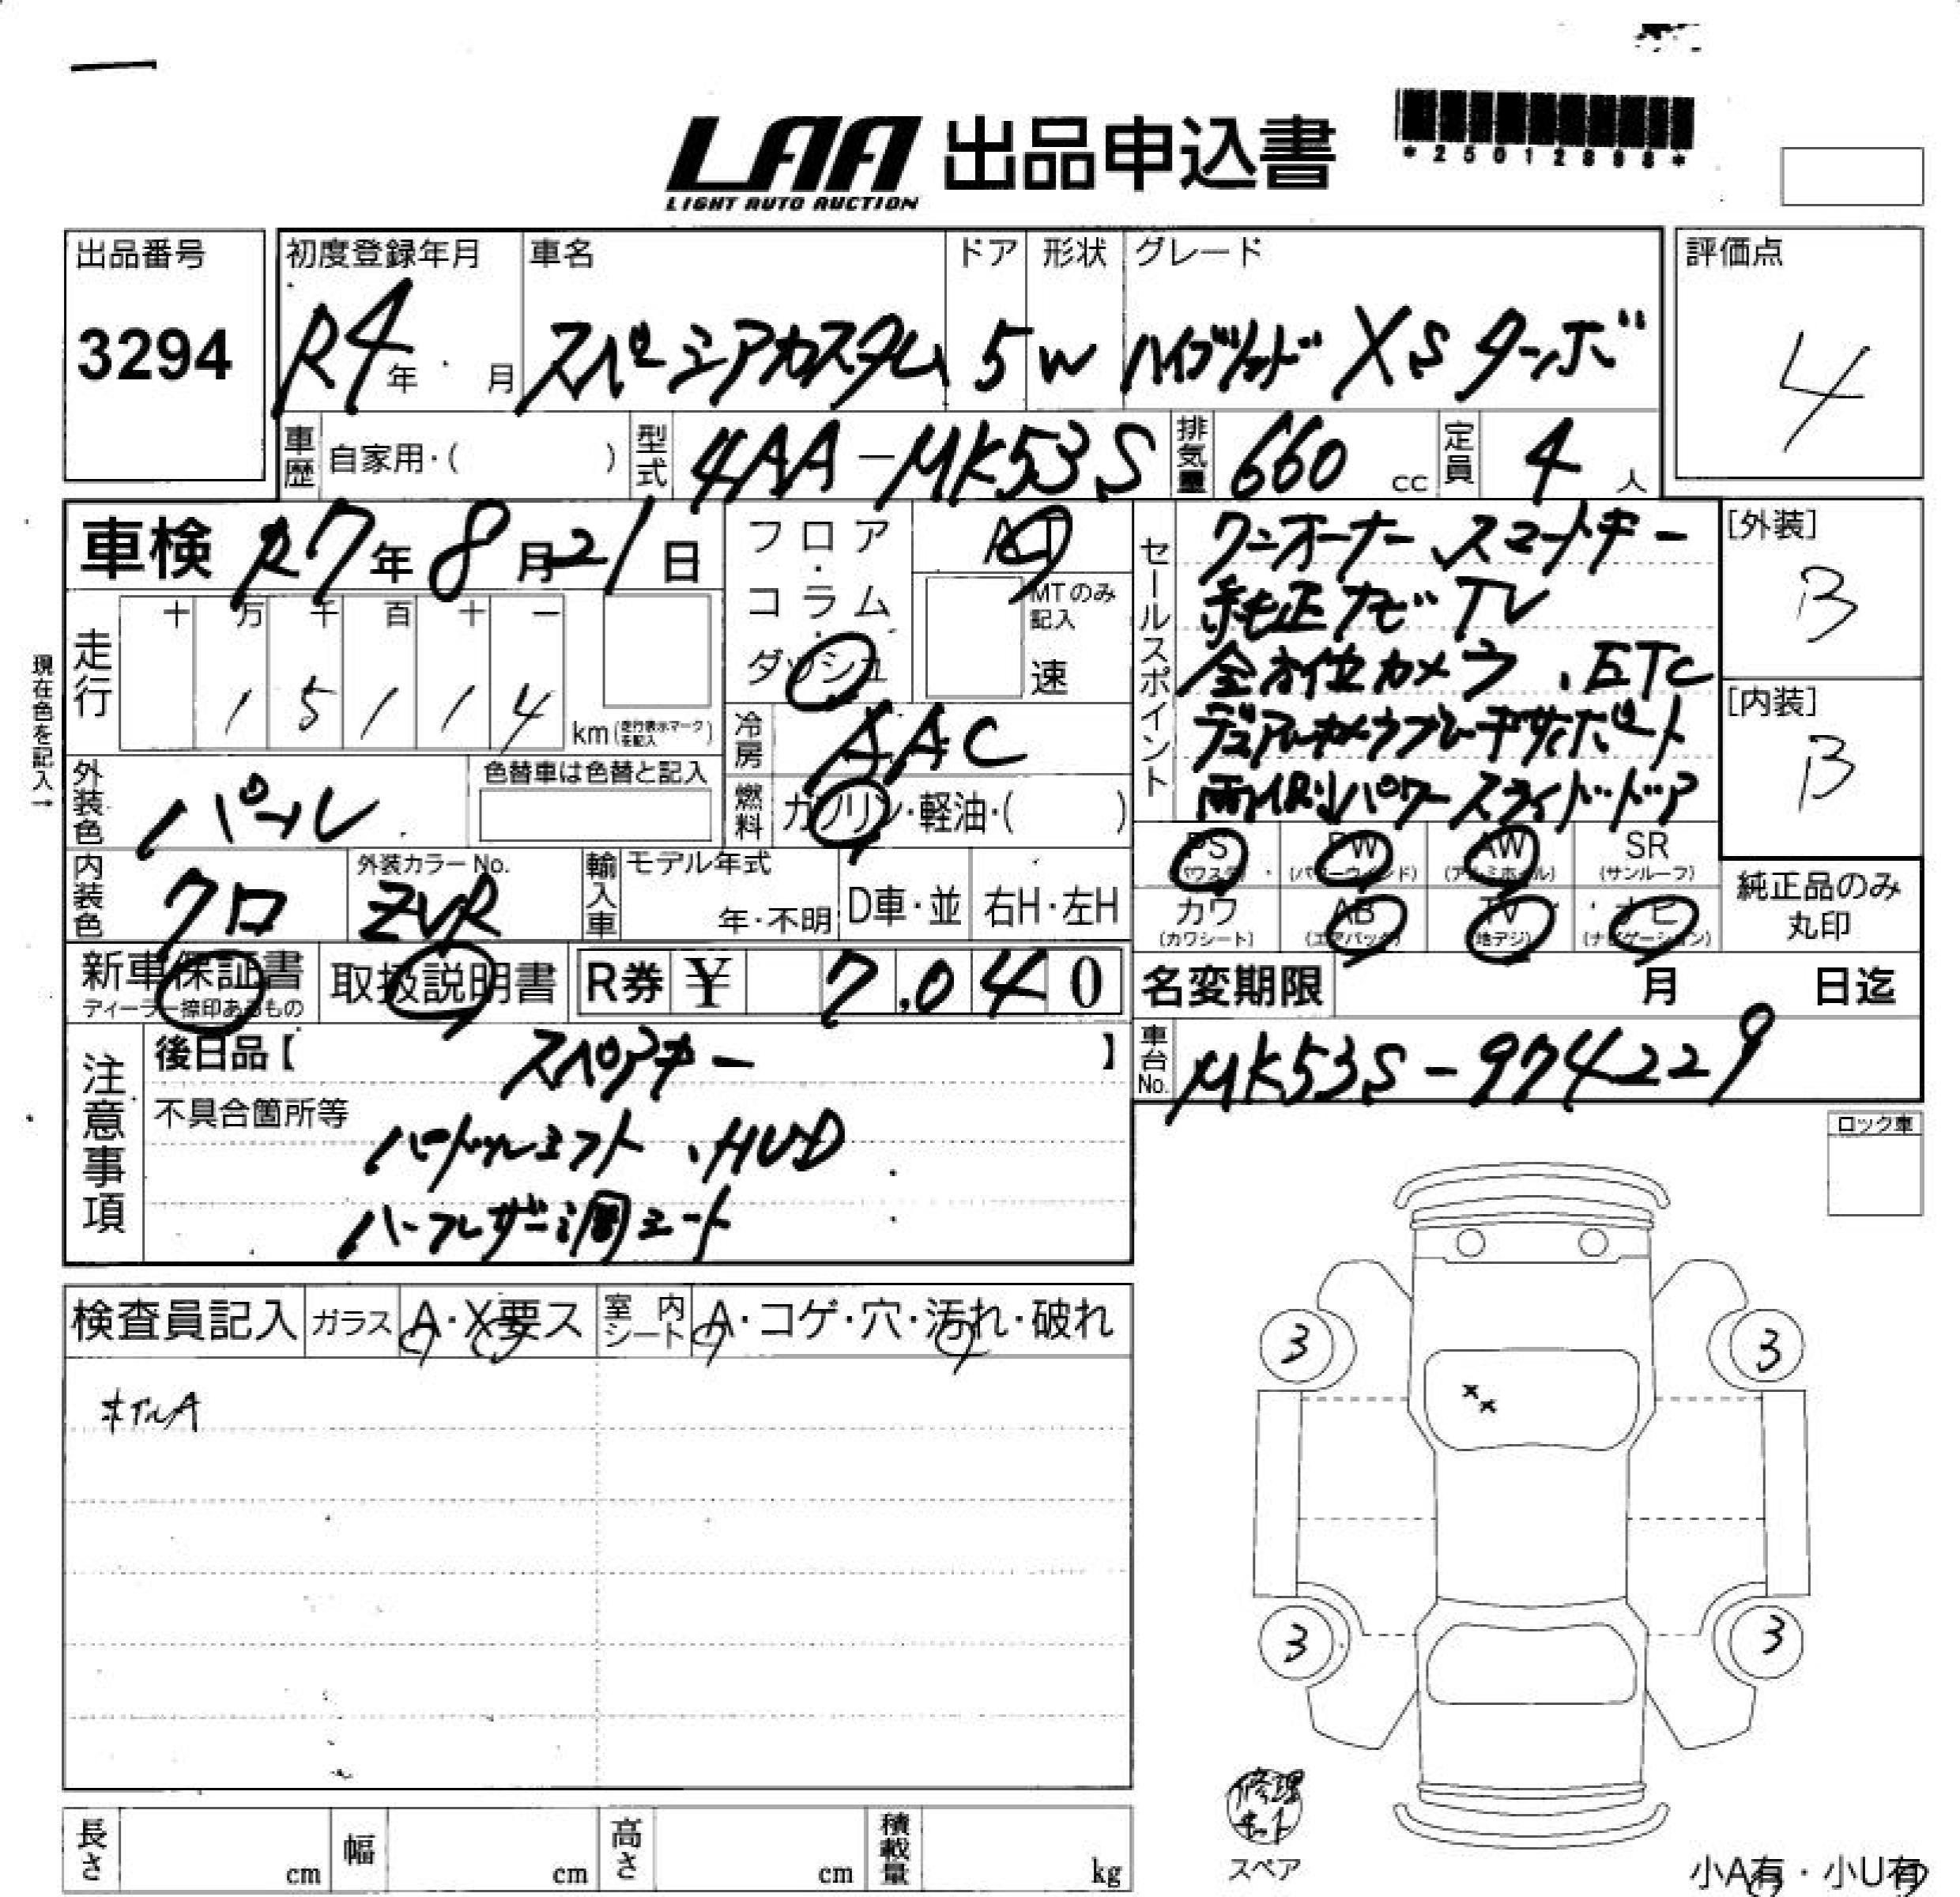 LAA 出品申込書
LIGHT AUTO AUCTION
*25012898*
出品番号
3294
初度登録年月
R4年 月
車名
スペーシアカスタム
ドア
5
形状
W
グレード
ハイブリッド XSターボ
評価点
4
車歴 自家用・( )
型式 4AA-MK53S
排気量 660 cc
定員 4 人
車検 R7年8月21日
フロア・コラム・ダッシュ
AT
MTのみ記入
速
セールスポイント
ワンオーナー、スマートキー
純正ナビ TV
全方位カメラ、ETC
デュアルカメラブレーキサポート
両側パワースライドドア
[外装]
B
[内装]
B
現在色を記入→
走行
十 万 千 百 十 一
1 5 1 1 4
km(走行表示マークを記入)
冷房 AAC
外装色 パール
色替車は色替と記入
燃料 ガソリン・軽油・( )
PS (パワステ)
PW (パワーウインド)
AW (アルミホイル)
SR (サンルーフ)
カワ (カワシート)
AB (エアバック)
TV (地デジ)
ナビ (ナビゲーション)
純正品のみ丸印
内装色 クロ
外装カラーNo.
ZVR
輸入車
モデル年式
年・不明
D車・並
右H・左H
新車保証書
ディーラー捺印あるもの
取扱説明書
R券 ¥ 7,040
名変期限 月 日迄
車台No. MK53S-974229
注意事項
後日品【 スペアキー 】
不具合箇所等
パドルシフト、HUD
ハーフレザー調シート
ロック車
検査員記入
ガラス A・X要ス
室内シート A・コゲ・穴・汚れ・破れ
ホイルA
3 3
x
x
3 3
修理キット
スペア
長さ cm
幅 cm
高さ cm
積載量 kg
小A有・小U有